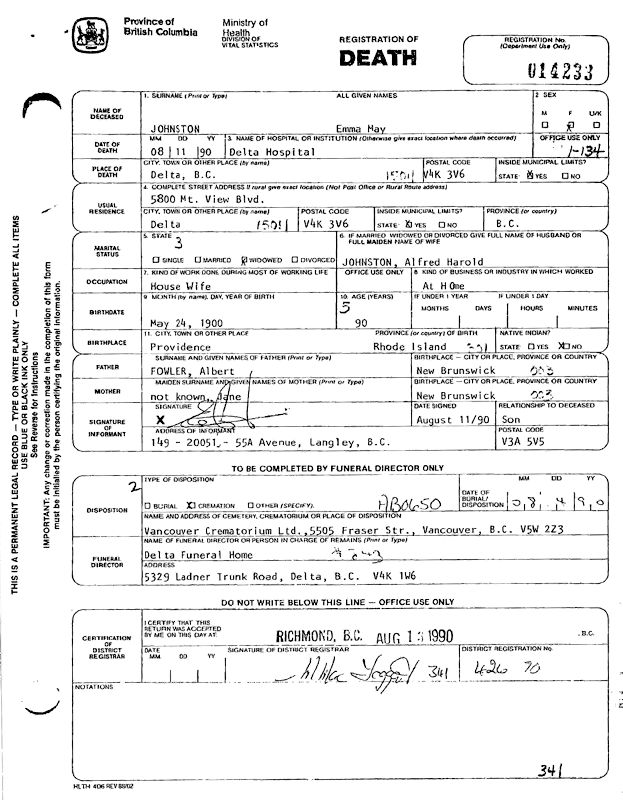 Province of British Columbia
Ministry of Health
DIVISION OF VITAL STATISTICS
REGISTRATION OF
DEATH
REGISTRATION No.
(Department Use Only)
014233
NAME OF DECEASED
1. SURNAME (Print or Type) ALL GIVEN NAMES
JOHNSTON Emma May
2 SEX
M F U/K
DATE OF DEATH
MM DD YY
08 11 90
3. NAME OF HOSPITAL OR INSTITUTION (Otherwise give exact location where death occurred)
Delta Hospital
OFFICE USE ONLY
1-134
PLACE OF DEATH
CITY, TOWN OR OTHER PLACE (by name)
Delta, B.C. 1501
POSTAL CODE
V4K 3V6
INSIDE MUNICIPAL LIMITS?
STATE: ☒ YES ☐ NO
USUAL RESIDENCE
4. COMPLETE STREET ADDRESS If rural give exact location (Not Post Office or Rural Route address)
5800 Mt. View Blvd.
CITY, TOWN OR OTHER PLACE (by name)
Delta 1501
POSTAL CODE
V4K 3V6
INSIDE MUNICIPAL LIMITS?
STATE: ☒ YES ☐ NO
PROVINCE (or country)
B.C.
MARITAL STATUS
5. STATE
3
☐ SINGLE ☐ MARRIED ☒ WIDOWED ☐ DIVORCED
6. IF MARRIED, WIDOWED OR DIVORCED GIVE FULL NAME OF HUSBAND OR FULL MAIDEN NAME OF WIFE
JOHNSTON, Alfred Harold
OCCUPATION
7. KIND OF WORK DONE DURING MOST OF WORKING LIFE
House Wife
OFFICE USE ONLY
8. KIND OF BUSINESS OR INDUSTRY IN WHICH WORKED
At HOme
BIRTHDATE
9 MONTH (by name), DAY, YEAR OF BIRTH
May 24, 1900
10. AGE (YEARS)
5
90
IF UNDER 1 YEAR
MONTHS DAYS
IF UNDER 1 DAY
HOURS MINUTES
BIRTHPLACE
11. CITY, TOWN OR OTHER PLACE
Providence
PROVINCE (or country) OF BIRTH
Rhode Island
NATIVE INDIAN?
STATE ☐ YES ☒ NO
FATHER
SURNAME AND GIVEN NAMES OF FATHER (Print or Type)
FOWLER, Albert
BIRTHPLACE — CITY OR PLACE, PROVINCE OR COUNTRY
New Brunswick 003
MOTHER
MAIDEN SURNAME AND GIVEN NAMES OF MOTHER (Print or Type)
not known, Jane
BIRTHPLACE — CITY OR PLACE, PROVINCE OR COUNTRY
New Brunswick 003
SIGNATURE OF INFORMANT
SIGNATURE
X
DATE SIGNED
August 11/90
RELATIONSHIP TO DECEASED
Son
ADDRESS OF INFORMANT
149 - 20051 - 55A Avenue, Langley, B.C.
POSTAL CODE
V3A 5V5
TO BE COMPLETED BY FUNERAL DIRECTOR ONLY
2
DISPOSITION
TYPE OF DISPOSITION
☐ BURIAL ☒ CREMATION ☐ OTHER (SPECIFY).
AB0650
DATE OF BURIAL/DISPOSITION
MM DD YY
08 14 90
NAME AND ADDRESS OF CEMETERY, CREMATORIUM OR PLACE OF DISPOSITION
Vancouver Crematorium Ltd.,5505 Fraser Str., Vancouver, B.C. V5W 2Z3
FUNERAL DIRECTOR
NAME OF FUNERAL DIRECTOR OR PERSON IN CHARGE OF REMAINS (Print or Type)
Delta Funeral Home
ADDRESS
5329 Ladner Trunk Road, Delta, B.C. V4K 1W6
DO NOT WRITE BELOW THIS LINE — OFFICE USE ONLY
CERTIFICATION OF DISTRICT REGISTRAR
I CERTIFY THAT THIS RETURN WAS ACCEPTED BY ME ON THIS DAY AT:
RICHMOND, B.C. AUG 13 1990 , B.C.
DATE
MM DD YY
SIGNATURE OF DISTRICT REGISTRAR
341
DISTRICT REGISTRATION No.
426 90
NOTATIONS
341
HLTH 406 REV 88/02
THIS IS A PERMANENT LEGAL RECORD — TYPE OR WRITE PLAINLY — COMPLETE ALL ITEMS
USE BLUE OR BLACK INK ONLY
See Reverse for Instructions
IMPORTANT: Any change or correction made in the completion of this form
must be initialled by the person certifying the original information.